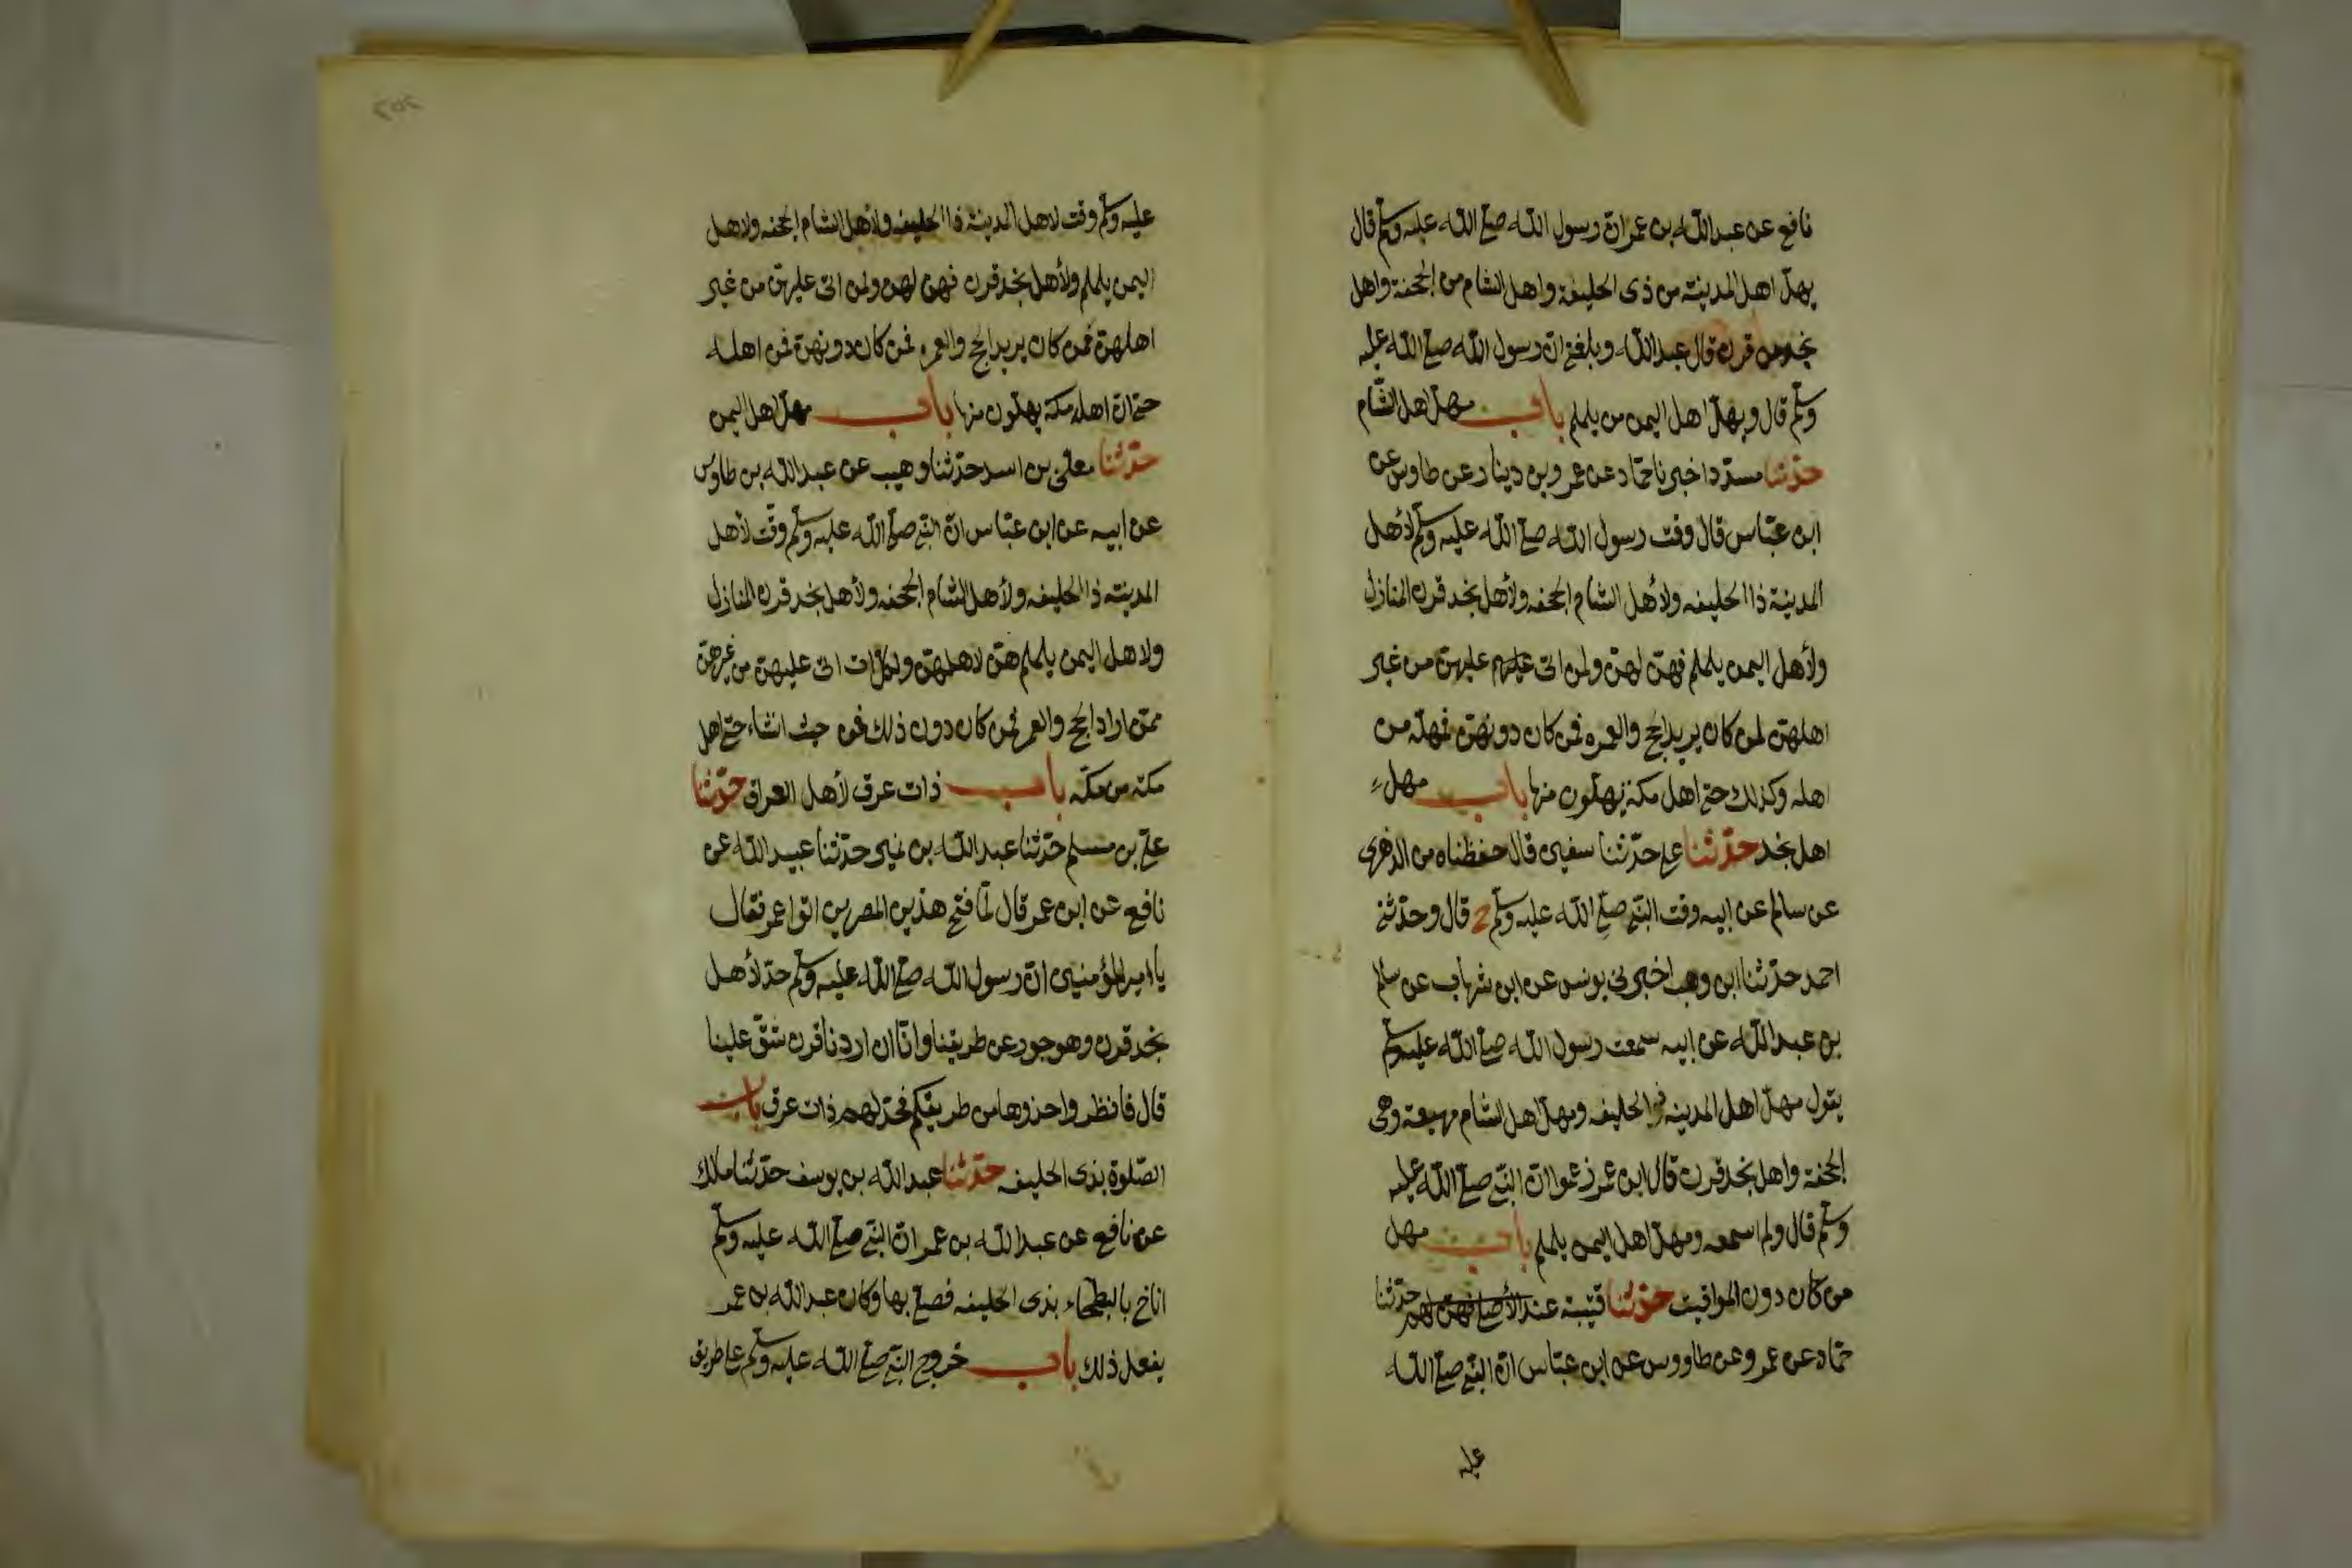 نافع عن عبد الله بن عمر ان رسول الله صلى الله عليه وسلم قال
يهل اهل المدينة من ذى الحليفة واهل الشام من الجحفة واهل
نجد من قرن قال عبد الله وبلغنى ان رسول الله صلى الله عليه
وسلم قال ويهل اهل اليمن من يلملم باب مهل اهل الشام
حدثنا مسدد اخبرنا حماد عن عمرو بن دينار عن طاوس عن
ابن عباس قال وقت رسول الله صلى الله عليه وسلم لأهل
المدينة ذا الحليفه ولأهل الشام الجحفه ولأهل نجد قرن المنازل
ولأهل اليمن يلملم فهن لهن ولمن اتى عليهم عليهن من غير
اهلهن لمن كان يريد الحج والعمره فمن كان دونهن فمهله من
اهله وكذلك حتى اهل مكة يهلون منها باب مهل
اهل نجد حدثنا على حدثنا سفين قال حفظناه من الزهرى
عن سالم عن ابيه وقت النبى صلى الله عليه وسلم ح قال وحدثنى
احمد حدثنا ابن وهب اخبرنى يونس عن ابن شهاب عن سالم
بن عبد الله عن ابيه سمعت رسول الله صلى الله عليه وسلم
يقول مهل اهل المدينه ذو الحليفه ومهل اهل الشام مهيعة وهى
الجحفة واهل نجد قرن قال ابن عمر زعموا ان النبى صلى الله عليه
وسلم قال ولم اسمعه ومهل اهل اليمن يلملم باب مهل
من كان دون المواقيت حدثنا قتيبة حدثنا
حماد عن عمرو عن طاووس عن ابن عباس ان النبى صلى الله
عليه
٢٥٢
عليه وسلم وقت لاهل المدينة ذا الحليفه ولأهل الشام الجحفه ولاهل
اليمن يلملم ولأهل نجد قرن فهن لهن ولمن اتى عليهن من غير
اهلهن فمن كان يريد الحج والعمره فمن كان دونهن فمن اهله
حتى ان اهل مكة يهلون منها باب مهل اهل اليمن
حدثنا معلى بن اسد حدثنا وهيب عن عبد الله بن طاوس
عن ابيه عن ابن عباس ان النبى صلى الله عليه وسلم وقت لأهل
المدينه ذا الحليفه ولأهل الشام الجحفه ولأهل نجد قرن المنازل
ولاهل اليمن يلملم هن لاهلهن ولكل ات اتى عليهن من غيرهن
ممن اراد الحج والعمره فمن كان دون ذلك فمن حيث انشاء حتى اهل
مكة من مكة باب ذات عرق لأهل العراق حدثنا
على بن مسلم حدثنا عبد الله بن نمير حدثنا عبيد الله عن
نافع عن ابن عمر قال لما فتح هذين المصرين اتوا عمر فقال
يا امير المؤمنين ان رسول الله صلى الله عليه وسلم حد لأهل
نجد قرن وهو جور عن طريقنا وانا ان اردنا قرن شق علينا
قال فانظروا حذوها من طريقكم فحد لهم ذات عرق باب
الصلوة بذى الحليفه حدثنا عبد الله بن يوسف حدثنا ملك
عن نافع عن عبد الله بن عمر ان النبى صلى الله عليه وسلم
اناخ بالبطحاء بذى الحليفه فصلى بها وكان عبد الله بن عمر
يفعل ذلك باب خروج النبى صلى الله عليه وسلم على طريق